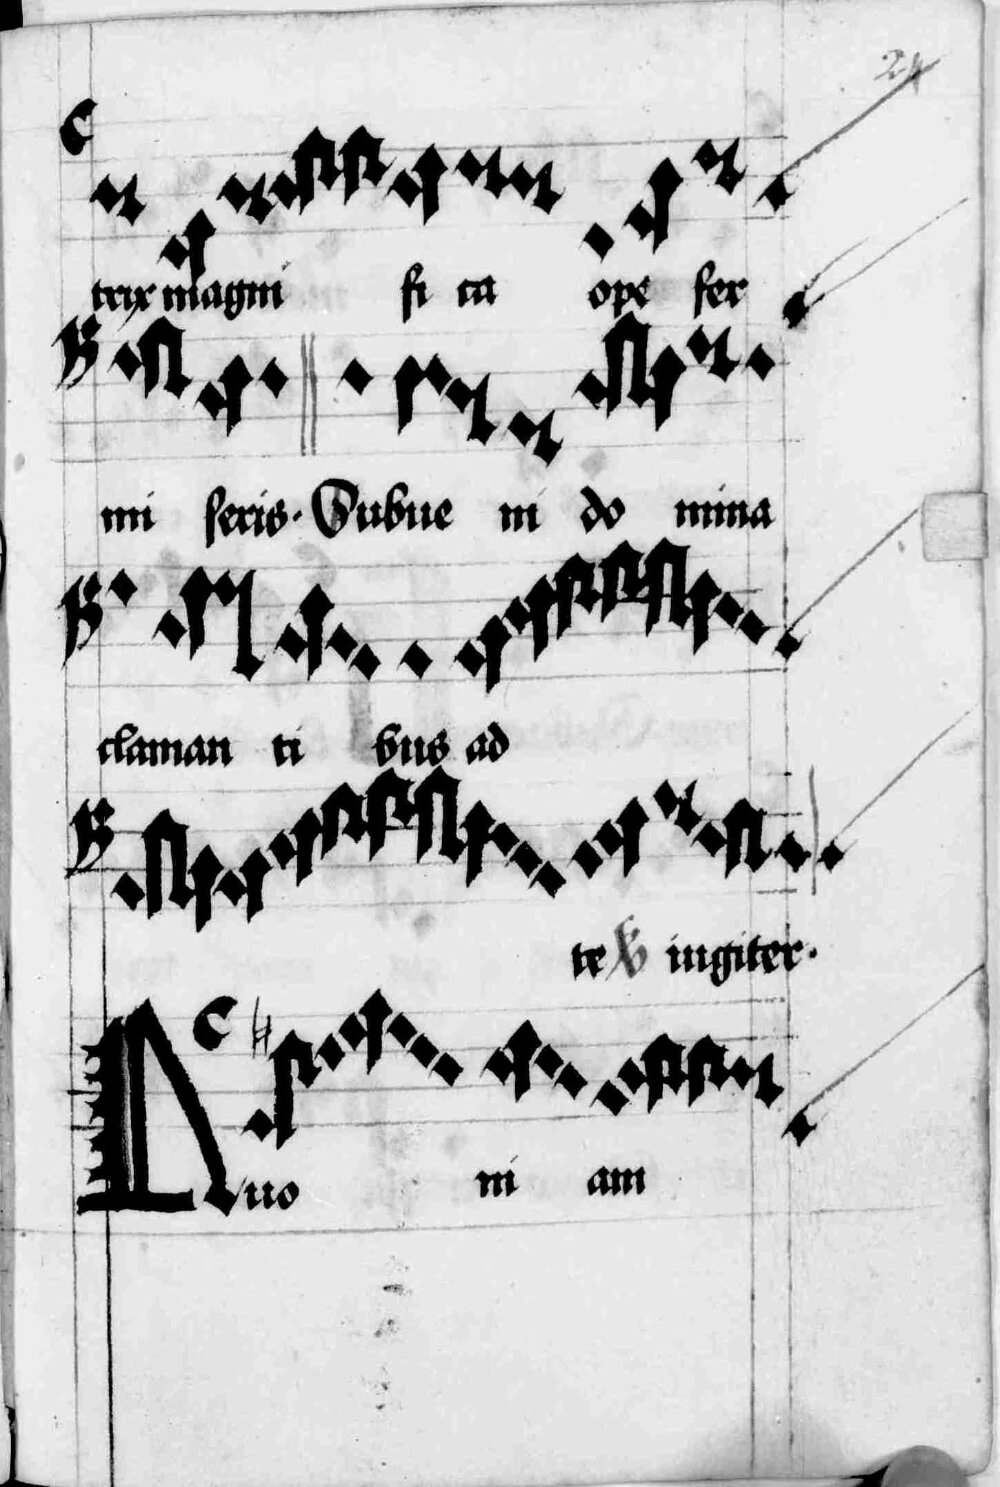 24
trix magni fi ca ope fer
mi seris. Subue ni do mina
claman ti bus ad
te iugiter.
Quo ni am